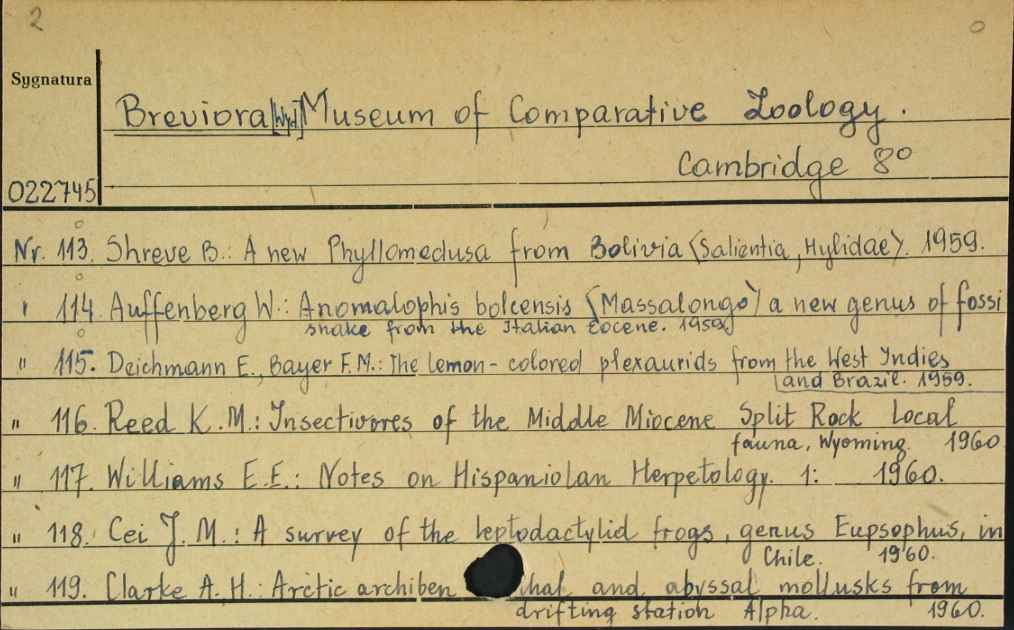 2
0
Sygnatura
Breviora [Wyd] Museum of Comparative Zoology.
Cambridge 8°
022745
Nr. 113. Shreve B.: A new Phyllomedusa from Bolivia (Salientia, Hylidae). 1959.
" 114. Auffenberg W.: Anomalophis bolcensis (Massalongo) a new genus of fossi
snake from the Italian Eocene. 1959.
" 115. Deichmann E., Bayer F.M.: The lemon-colored plexaurids from the West Indies
and Brazil. 1959.
" 116. Reed K.M.: Insectivores of the Middle Miocene Split Rock Local
fauna, Wyoming. 1960
" 117. Williams E.E.: Notes on Hispaniolan Herpetology. 1: 1960.
" 118. Cei J.M.: A survey of the leptodactylid frogs, genus Eupsophus, in
Chile. 1960.
" 119. Clarke A.H.: Arctic archiben hal and abyssal mollusks from
drifting station Alpha. 1960.